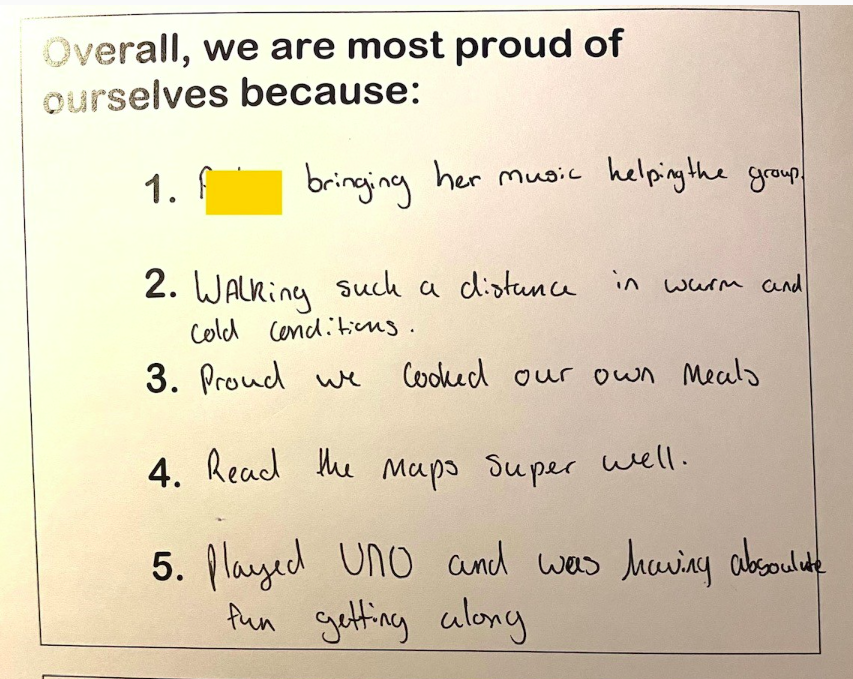 Overall, we are most proud of
ourselves because:
1. bringing her music helping the group.
2. Walking such a distance in warm and
cold conditions.
3. Proud we cooked our own Meals
4. Read the Maps Super well.
5. Played UNO and was having absoulute
fun getting along